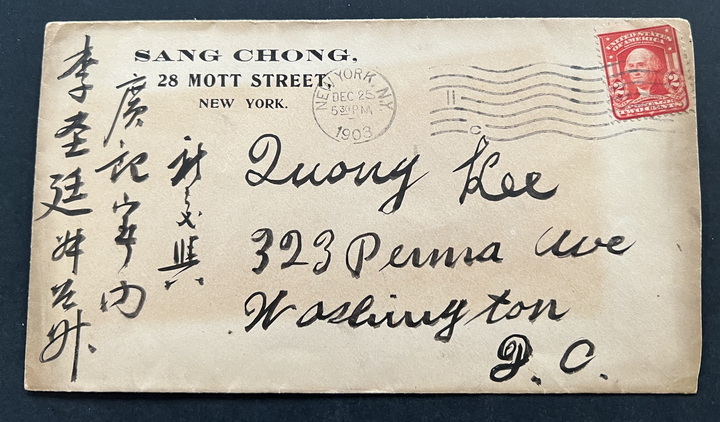 SANG CHONG,
28 MOTT STREET,
NEW YORK.
NEW YORK, N.Y.
DEC 25
5 30 PM
1903
11
C
UNITED STATES
OF AMERICA
2 2
POSTAGE
TWO CENTS
Quong Kee
323 Penna Ave
Washington
D. C.
廣記宝內
李 廷